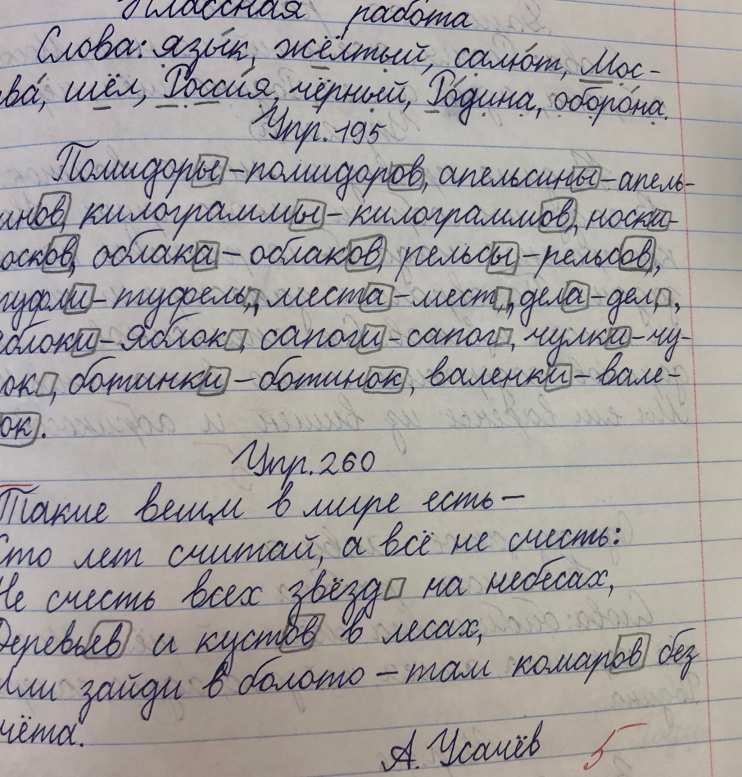 Классная работа
Слова: язы́к, жёлтый, салю́т, Мос-
ква́, шёл, Росси́я, чёрный, Ро́дина, оборо́на.
Упр. 195
Помидоры – помидоров, апельсины – апель-
инов, килограммы – килограммов, носки –
осков, облака – облаков, рельсы – рельсов,
туфли – туфель, места – мест, дела – дел,
яблоки – яблок, сапоги – сапог, чулки – чу-
ок, ботинки – ботинок, валенки – вале-
ок.
Упр. 260
Такие вещи в мире есть –
Сто лет считай, а всё не счесть:
Не счесть всех звёзд на небесах,
Деревьев и кустов в лесах,
Или зайди в болото – там комаров без
чёта.
А. Усачёв 5